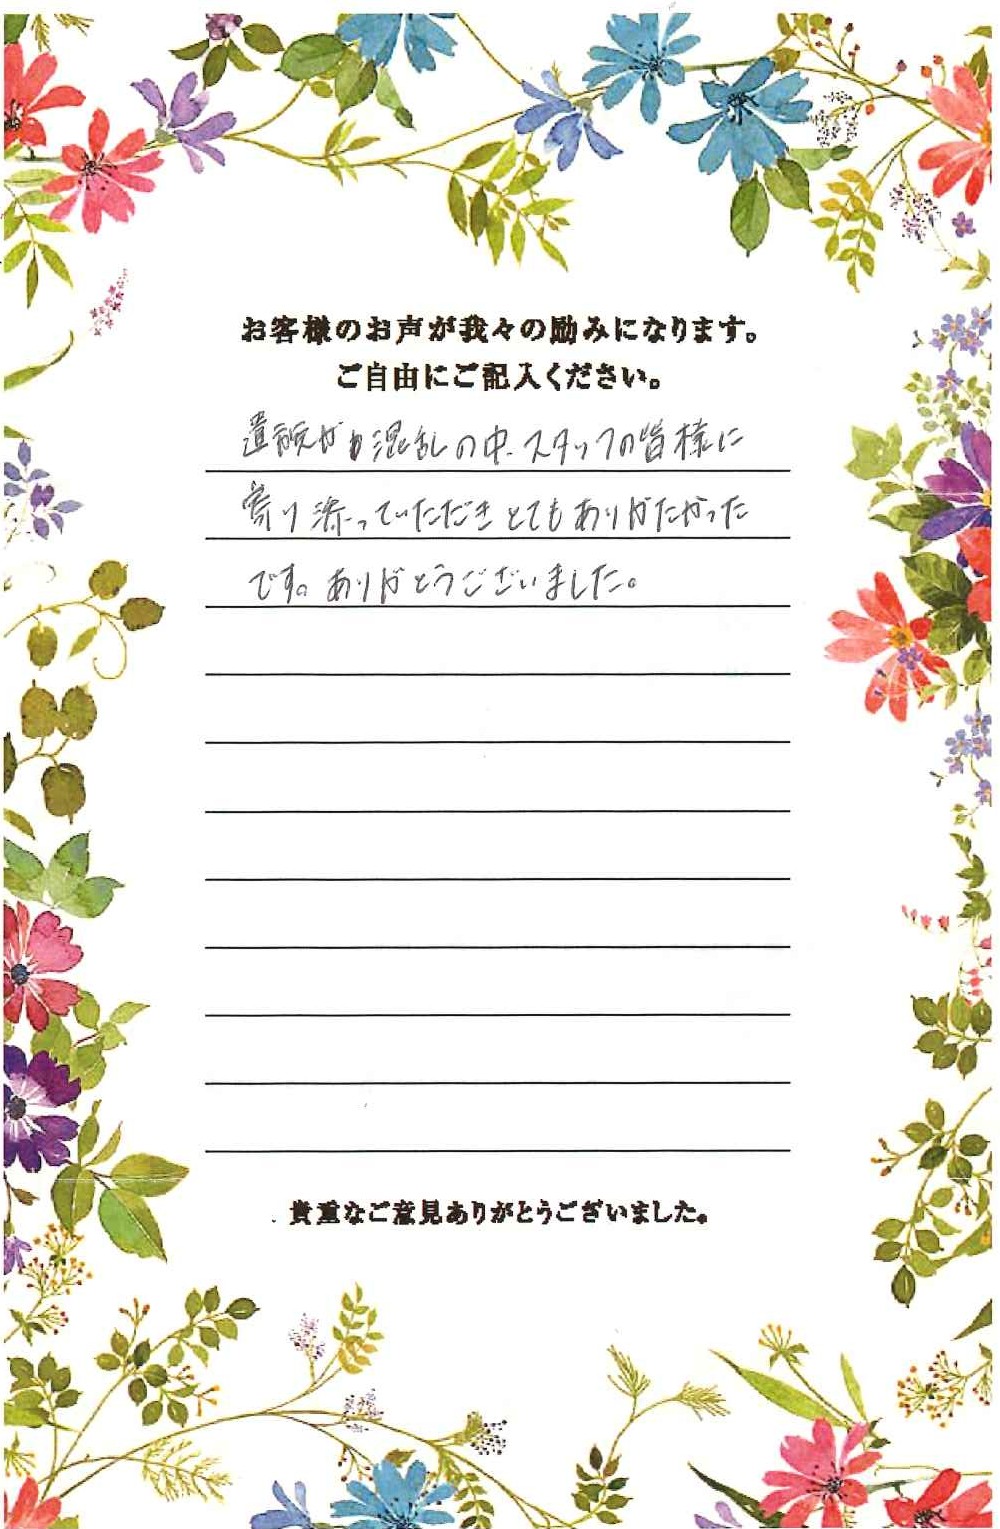 お客様のお声が我々の励みになります。
ご自由にご記入ください。
遺族が混乱の中、スタッフの皆様に
寄り添っていただきとてもありがたかった
です。ありがとうございました。
貴重なご意見ありがとうございました。